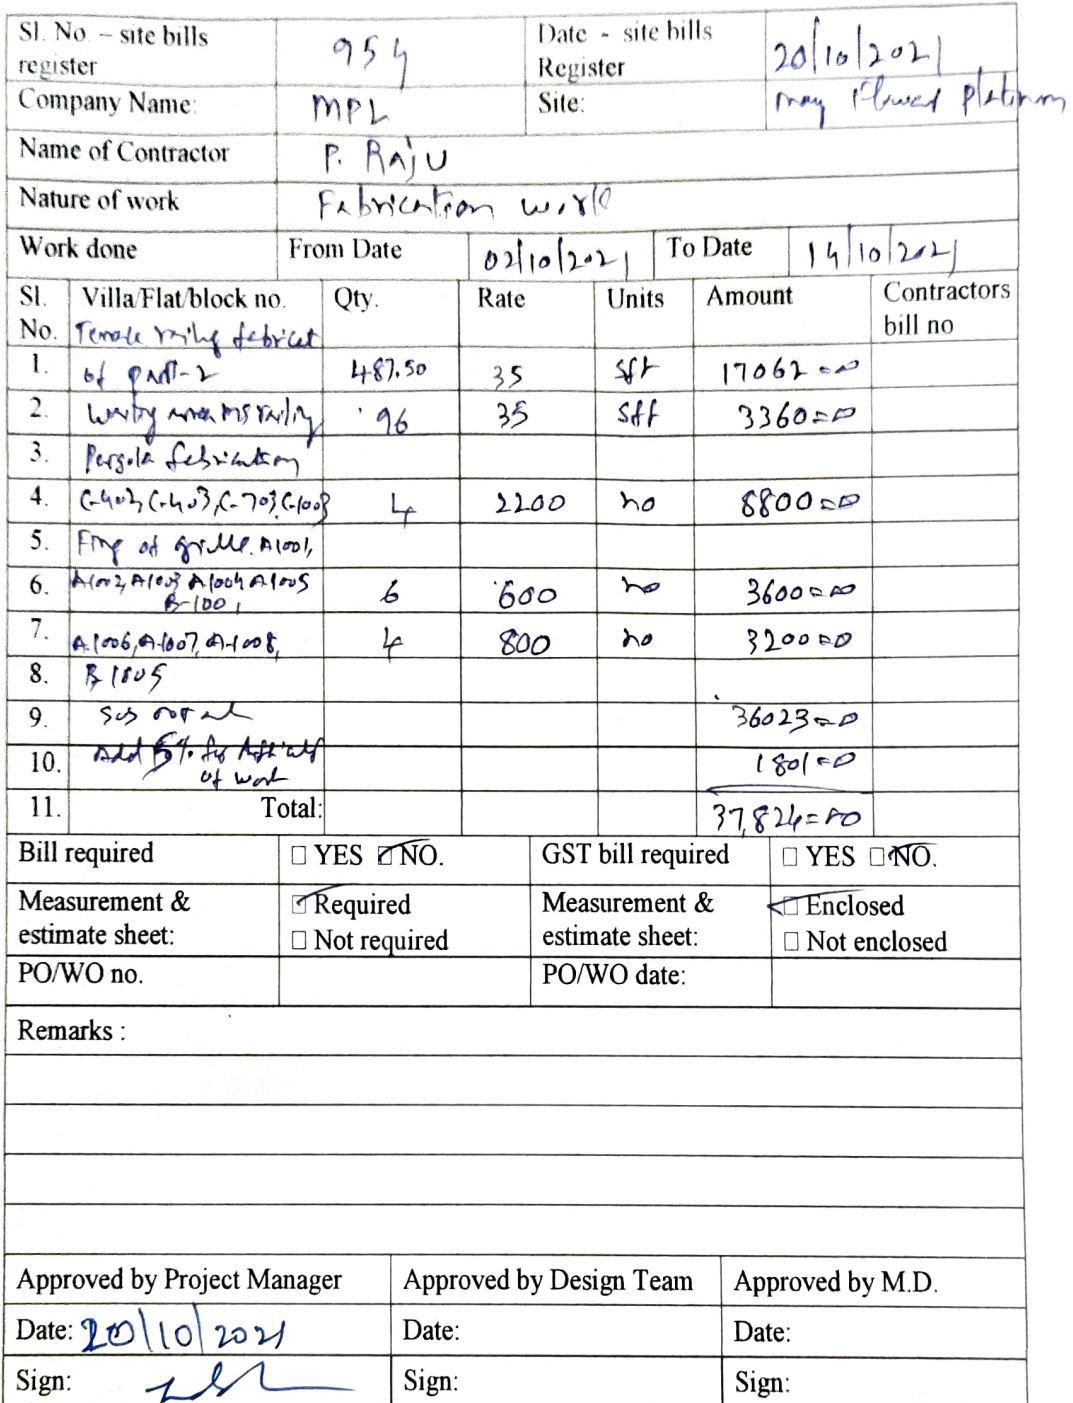 Sl. No. – site bills register 954 Date - site bills Register 20/10/2021
Company Name: MPL Site: may Flower platinum
Name of Contractor P. Raju
Nature of work Fabrication work
Work done From Date 02/10/2021 To Date 14/10/2021
Sl. No. Villa/Flat/block no. Qty. Rate Units Amount Contractors bill no
railing
1. of part-2 487.50 35 sft 17062=00
2. area ms railing 96 35 sft 3360=00
3. Pergola fabrication
4. C-402, C-403, C-703, C-1003 4 2200 no 8800=00
5. of grille. A1001,
6. A1002, A1003 A1004 A1005
B-1001 6 600 no 3600=00
7. A-1006, A-1007, A-1008, 4 800 no 3200=00
8. B 1005
9. 36023=00
10. Add 5% for
of work 1801=00
11. Total: 37,824=00
Bill required □ YES □ NO. GST bill required □ YES □ NO.
Measurement & estimate sheet: □ Required □ Not required Measurement & estimate sheet: □ Enclosed □ Not enclosed
PO/WO no. PO/WO date:
Remarks :
Approved by Project Manager Approved by Design Team Approved by M.D.
Date: 20/10/2021 Date: Date:
Sign: Sign: Sign: